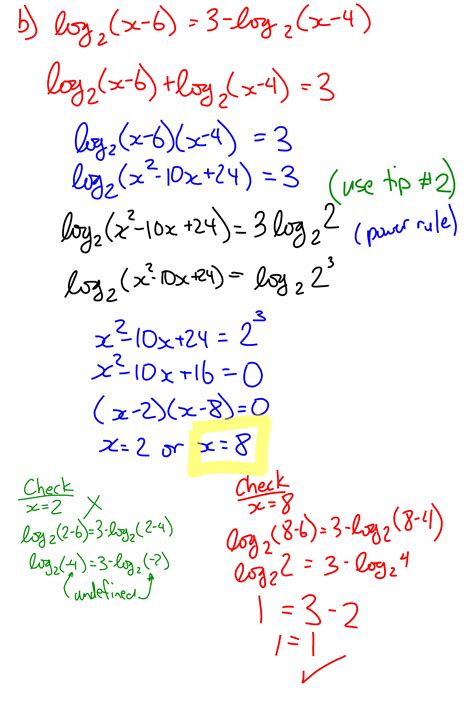 b) log₂(x-6) = 3-log₂(x-4)
log₂(x-6)+log₂(x-4) = 3
log₂(x-6)(x-4) = 3
log₂(x²-10x+24) = 3
(use tip #2)
log₂(x²-10x+24) = 3log₂2 (power rule)
log₂(x²-10x+24) = log₂2³
x²-10x+24 = 2³
x²-10x+16 = 0
(x-2)(x-8)=0
x=2 or x=8
Check
x=2 X
log₂(2-6)=3-log₂(2-4)
log₂(-4)=3-log₂(-2)
(undefined)
Check
x=8
log₂(8-6)=3-log₂(8-4)
log₂2 = 3-log₂4
1 = 3-2
1=1
✓